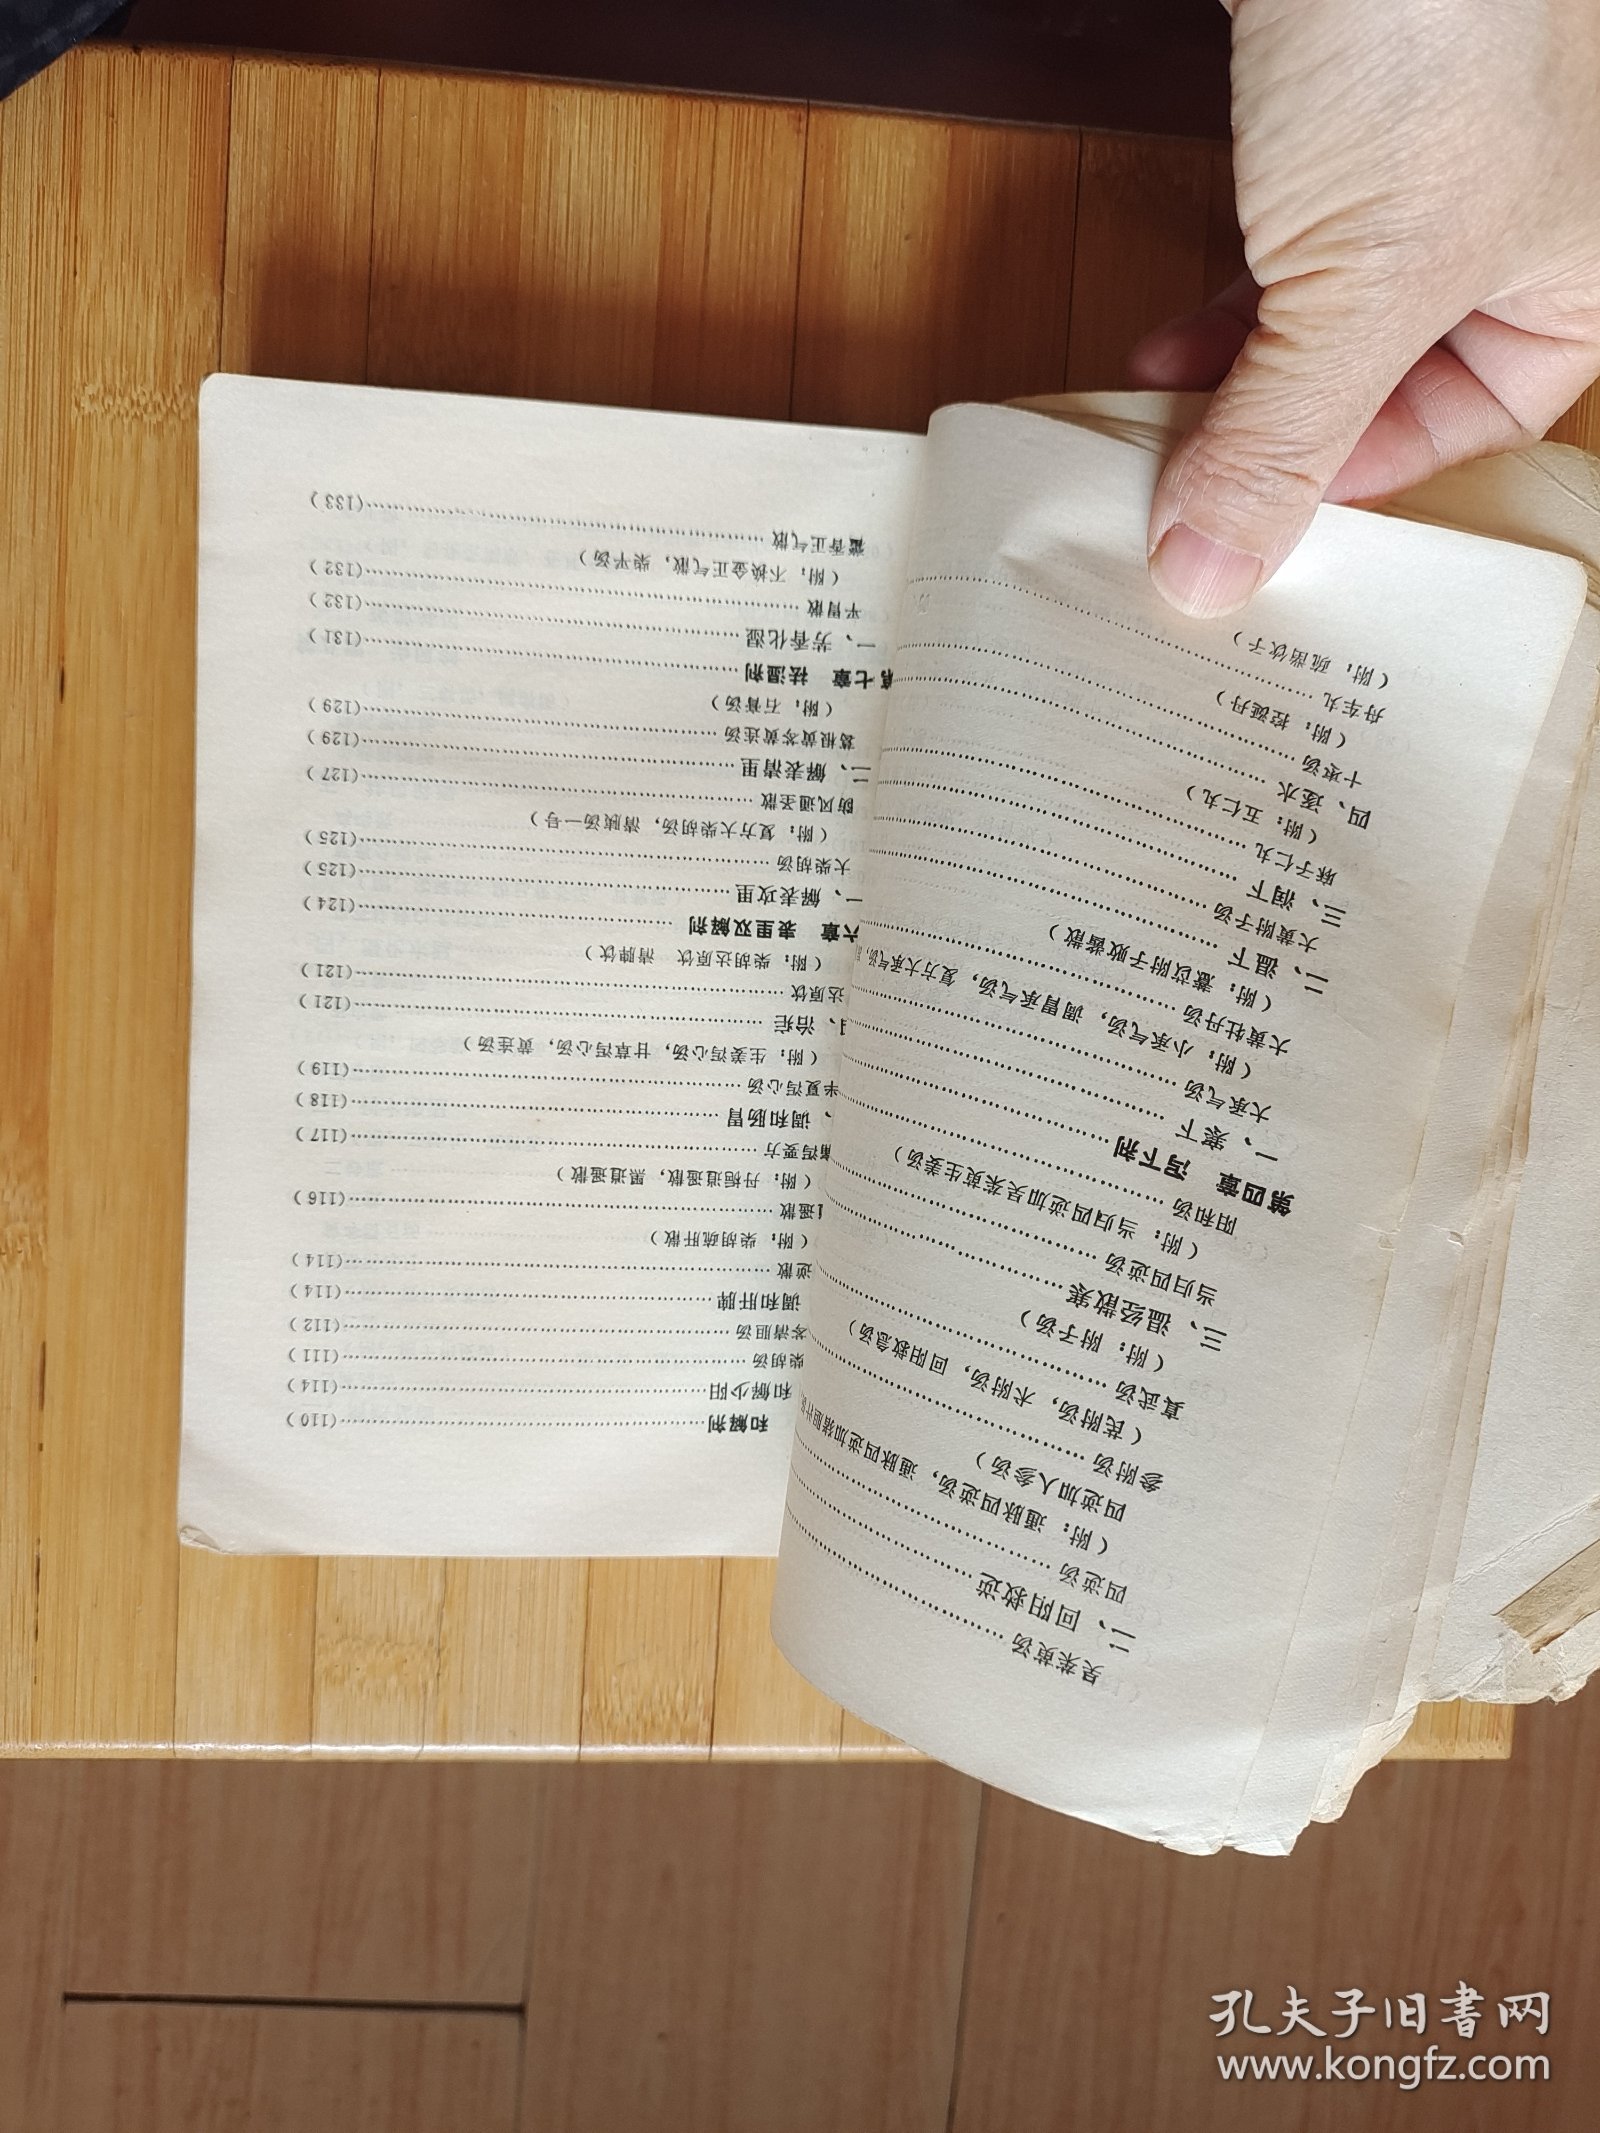 吴茱萸汤
二、回阳救逆
四逆汤
(附：通脉四逆汤，通脉四逆加猪胆汁
四逆加人参汤)
参附汤
(芪附汤，术附汤，回阳救急汤)
真武汤
(附：附子汤)
三、温经散寒
当归四逆汤
(附：当归四逆加吴茱萸生姜汤)
阳和汤
第四章 泻下剂
一、寒下
大承气汤
(附：小承气汤，调胃承气汤，复方大承气汤，
大黄牡丹汤
(附：薏苡附子败酱散)
二、温下
大黄附子汤
三、润下
麻子仁丸
(附：五仁丸)
四、逐水
十枣汤
(附：控涎丹)
舟车丸
(附：疏凿饮子)
和解剂……(110)
和解少阳……(114)
柴胡汤……(111)
芩清胆汤……(112)
调和肝脾……(114)
逆散……(114)
(附：柴胡疏肝散)
遥散……(116)
(附：丹栀逍遥散，黑逍遥散)
痛泻要方……(117)
、调和肠胃……(118)
半夏泻心汤……(119)
(附：生姜泻心汤，甘草泻心汤，黄连汤)
、治疟……(121)
达原饮……(121)
(附：柴胡达原饮 清脾饮)
六章 表里双解剂……(124)
一、解表攻里……(125)
大柴胡汤……(125)
(附：复方大柴胡汤，清胰汤一号)
防风通圣散……(127)
二、解表清里……(129)
葛根黄芩黄连汤……(129)
(附：石膏汤)
第七章 祛湿剂……(131)
一、芳香化湿……(132)
平胃散……(132)
(附：不换金正气散，柴平汤)
藿香正气散……(133)
孔夫子旧书网
www.kongfz.com